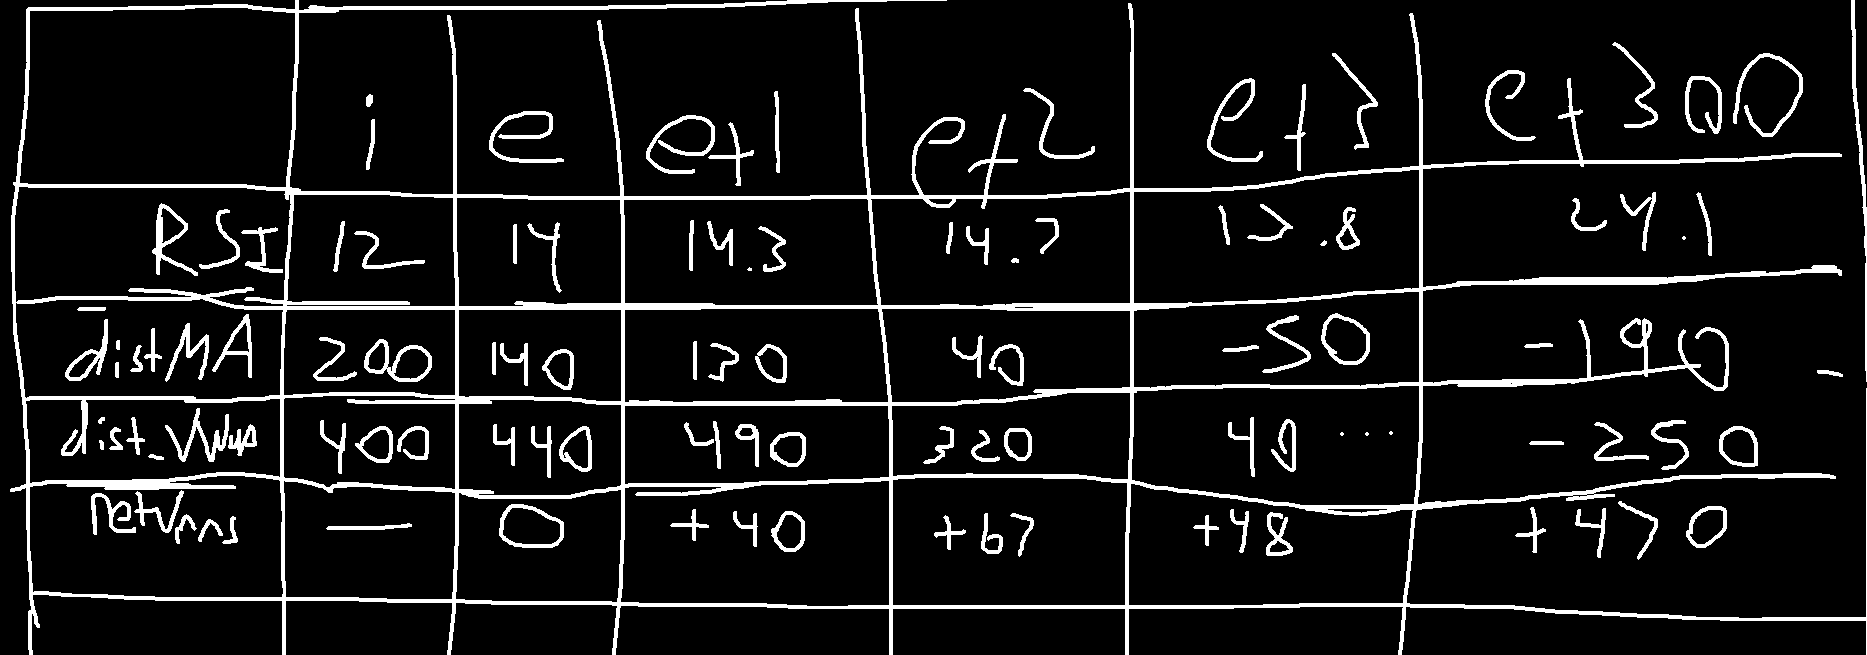 i e e+1 e+2 e+3 e+300
RSI 12 14 14.3 14.7 13.8 24.1
distMA 200 140 130 40 -50 -190 -
400 440 490 320 40 ... -250
returns — 0 +40 +67 +48 +470